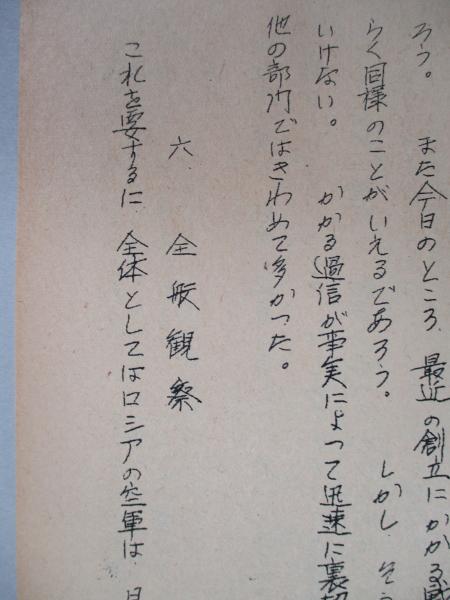 ろう。 また今日のところ 最近の創立にかかる
らく同様のことがいえるであろう。 しかし そう
いけない。 かかる過信が事実によって迅速に裏切
他の部門ではきわめて多かった。
六 全般観察
これを要するに 全体としてはロシアの空軍は